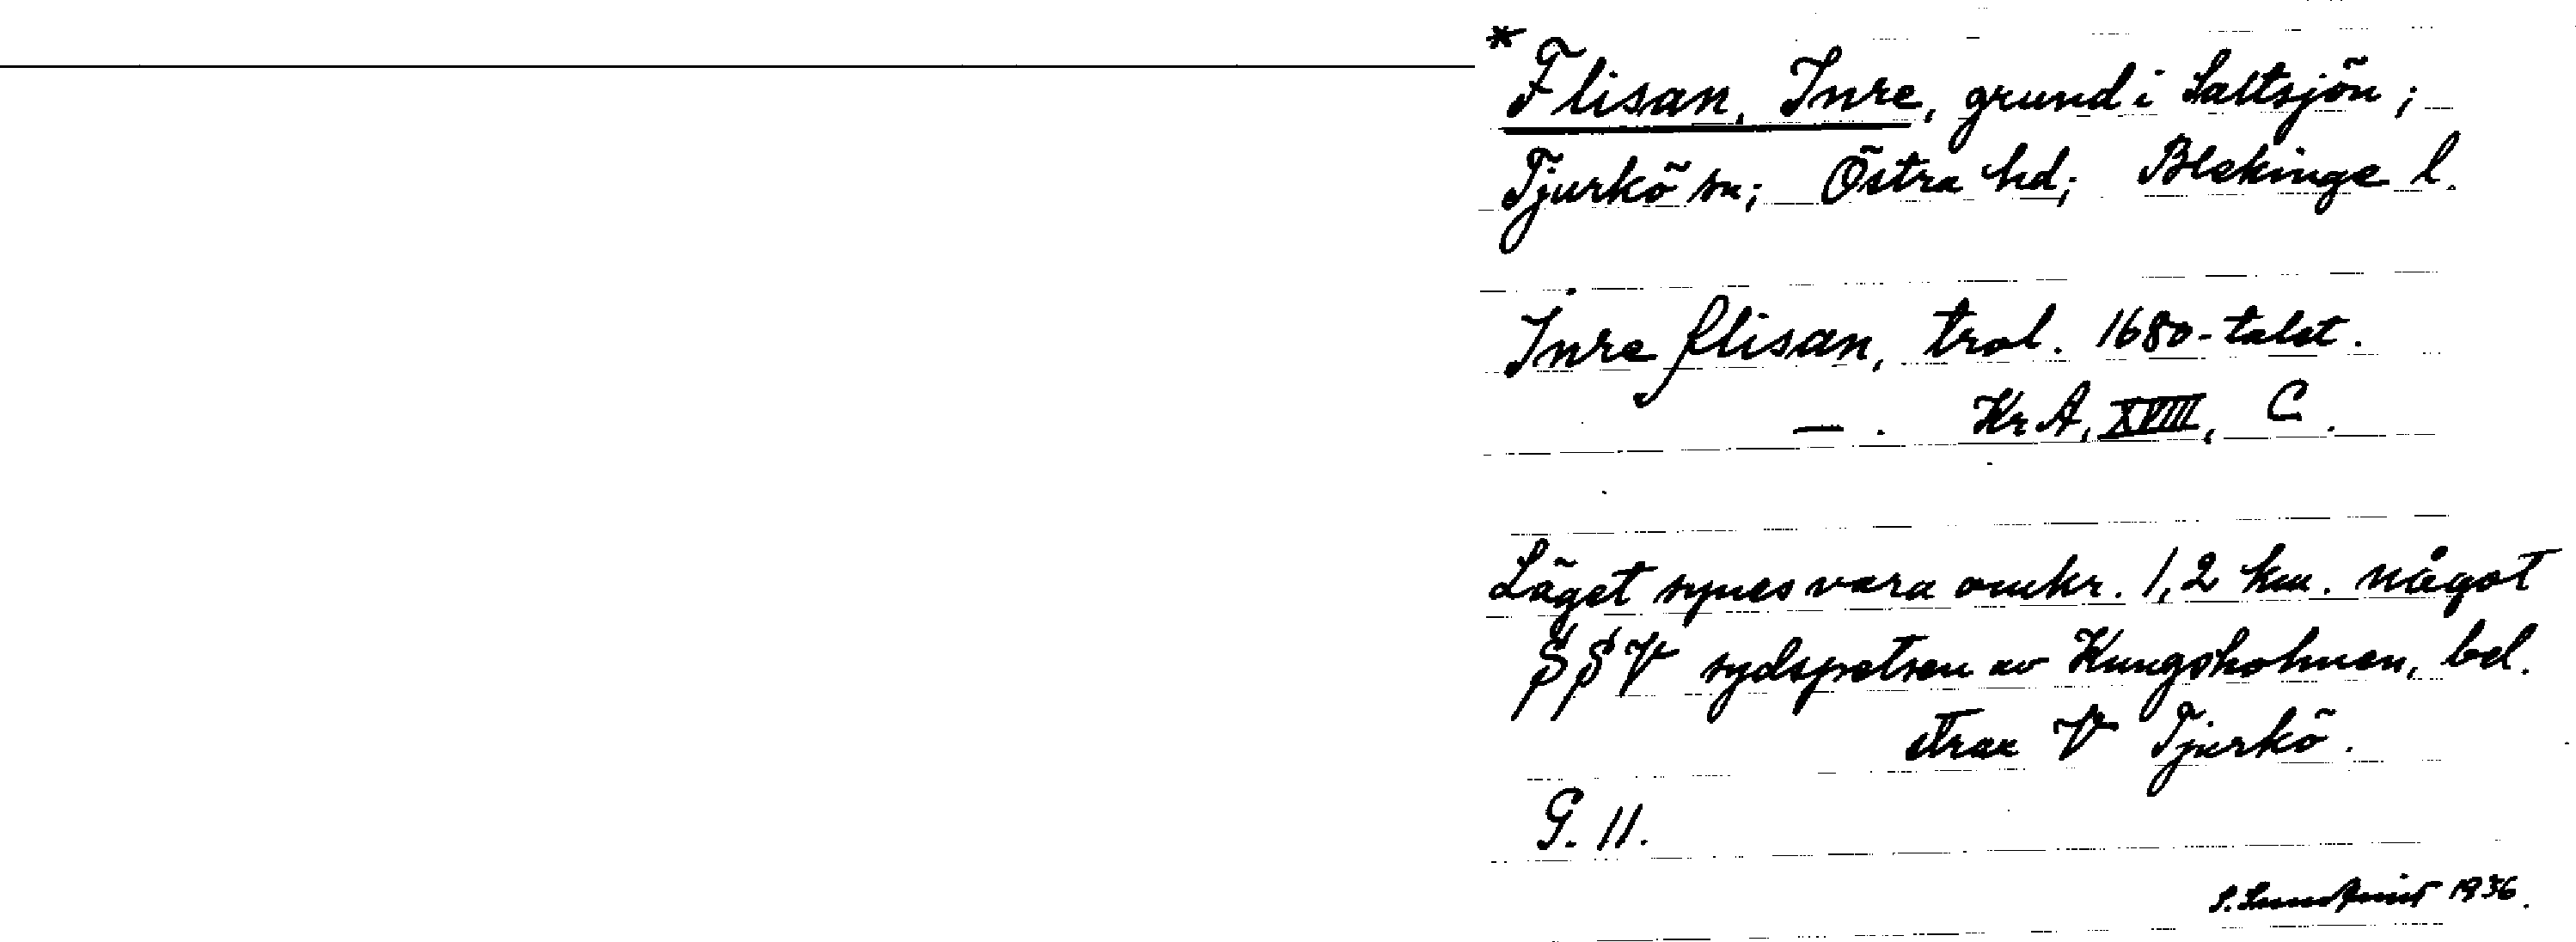 * Flisan, Inre, grund i Saltsjön;
Tjurkö sn; Östra hd; Blekinge l.
Inre flisan, trol. 1680-talet.
— . Kr A, XVIII, C.
Läget synes vara omkr. 1,2 km. något
SSV sydspetsen av Kungsholmen, bel.
strax V Tjurkö.
G. 11.
S. Lundqvist 1936.